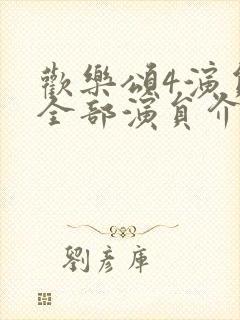 歡樂頌4演員
全部演員介
劉彥庫